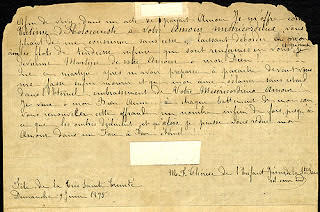 Afin de vivre dans un acte de parfait Amour Je m'offre comme
victime d'Holocauste à votre Amour miséricordieux, vous
me consumer sans cesse, laissant déborder en mon
âme les flots de tendresse infinie qui sont renfermés en vous
Martyre de votre Amour, ô mon Dieu
Que ce martyre après m'avoir préparée à paraître devant vous
me fasse enfin mourir et que mon âme s'élance sans retard
dans l'éternel embrassement de Votre Miséricordieux Amour
Je veux ô mon Bien-Aimé, à chaque battement de mon cœur
vous renouveler cette offrande un nombre infini de fois, jusqu'à
ce que les ombres s'étant évanouies je puisse vous redire mon
Amour dans un Face à Face Éternel
M. F. Thérèse de l'Enfant Jésus
rel. carm. ind.
Fête de la Très Sainte Trinité
Dimanche 9 juin 1895